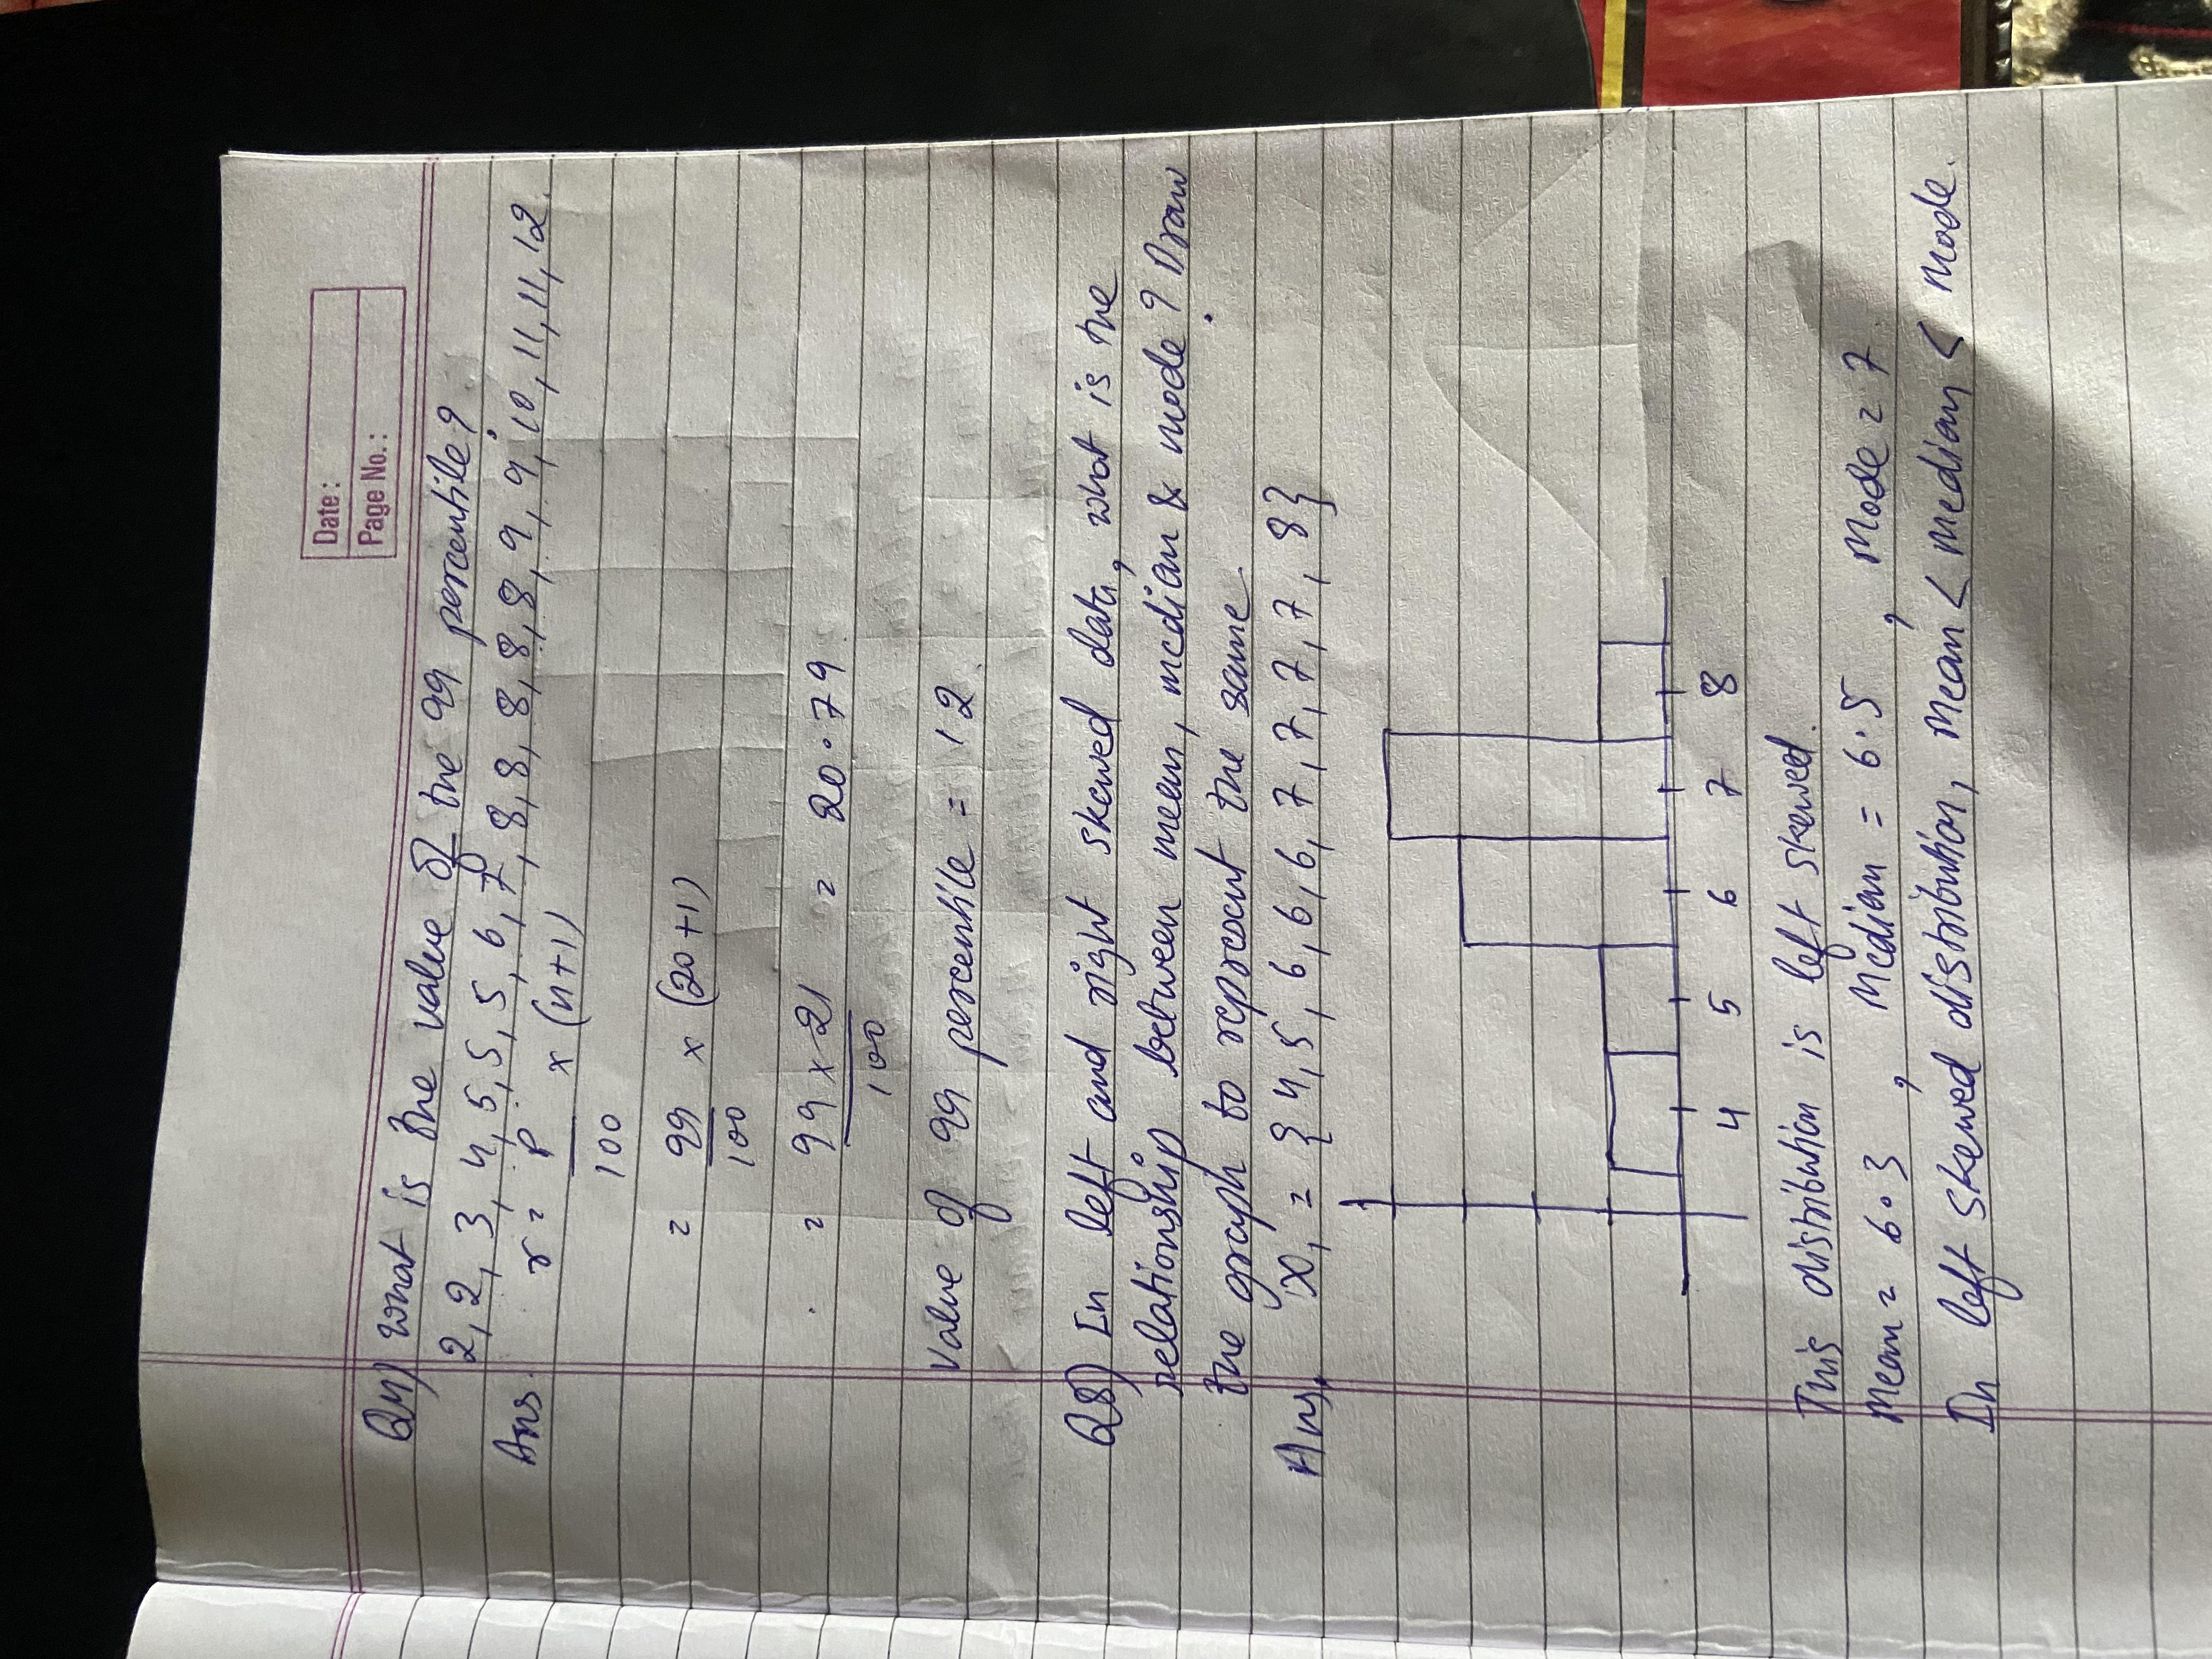 Date :
Page No. :
Q4) What is the value of the 99 percentile?
2, 2, 3, 4, 5, 5, 5, 6, 7, 8, 8, 8, 8, 8, 9, 9, 10, 11, 11, 12.
Ans. r = P/100 × (n+1)
= 99/100 × (20+1)
= 99 × 21/100 = 20.79
Value of 99 percentile = 12.
Q8) In left and right skewed data, what is the
relationship between mean, median & mode? Draw
the graph to represent the same.
Ans. X₁ = {4, 5, 6, 6, 6, 7, 7, 7, 7, 8}
4 5 6 7 8
This distribution is left skewed.
Mean = 6.3, Median = 6.5, Mode = 7.
In left skewed distribution, Mean < Median < Mode.